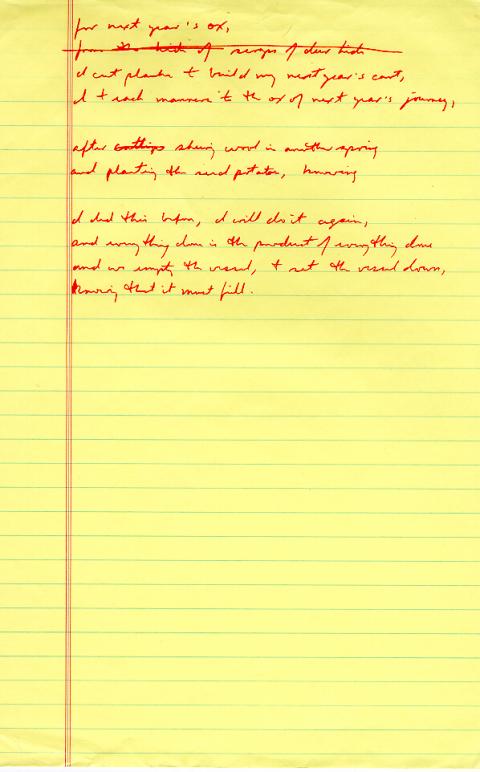 for next year's ox,
from the hide of scraps of deer hide
I cut planks to build my next year's cart,
I teach manners to the ox of next year's journey,
after setting shearing wool in another spring
and planting the seed potatoes, knowing
I did this before, I will do it again,
and everything done is the product of everything done
and we empty the vessel, & set the vessel down,
knowing that it must fill.